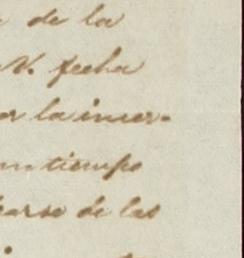 de la
V. fecha
or la inver-
un tiempo
earse de las